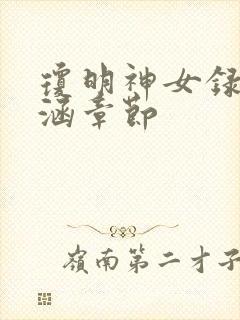 瓊明神女録
涵章節
嶺南第二才子